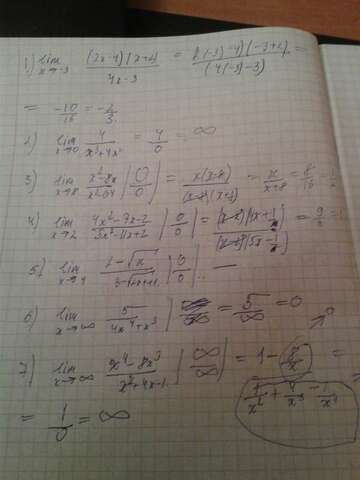 1) lim x→-3 (2x-4)(x+2) / 4x-3 = (2(-3)-4)(-3+2) / (4(-3)-3) =
= -10/15 = -2/3
2) lim x→0 4/(x³+4x) = 4/0 = ∞
3) lim x→8 (x²-8x)/(x²-64) |0/0| = x(x-8)/(x-8)(x+8) = x/(x+8) = 8/16 = 1/2
4) lim x→2 (4x²-7x-2)/(5x²-11x+2) |0/0| = (x-2)(4x+1)/(x-2)(5x-1) = 9/9 = 1
5) lim x→4 |0/0| —
6) lim x→∞ 5/(4x⁴+x³) | = 5/∞ = 0
7) lim x→∞ (x⁴-8x³)/(x²+4x-1) |∞/∞| = 1 - 8/x =
1/x² + 4/x³ - 1/x⁴
→0
= 1/0 = ∞